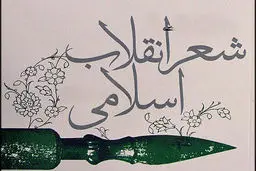 شعر انقلاب
اسلامی